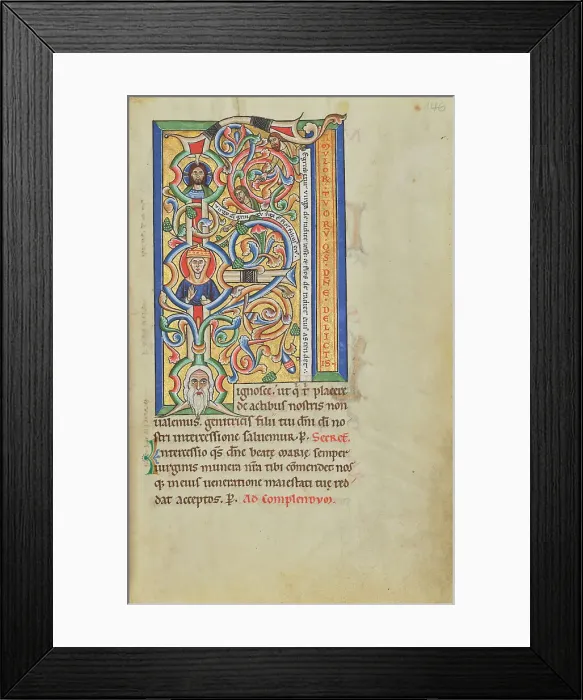 146
AMVLOR. TVORV QS. DNE. DELICTIS.
Egredietur uirga de radice iesse. & flos de radice eius ascendet.
ignosce. ut q t placere
de actibus nostris non
ualemus. genitricis filii tui dni di no
stri intercessione saluemur. P. Secret.
Intercessio qs dne beatę marię semper
uirginis munera nra tibi comendet nos
q; in eius ueneratione maiestati tuę red
dat acceptos. P. Ad Complendum.